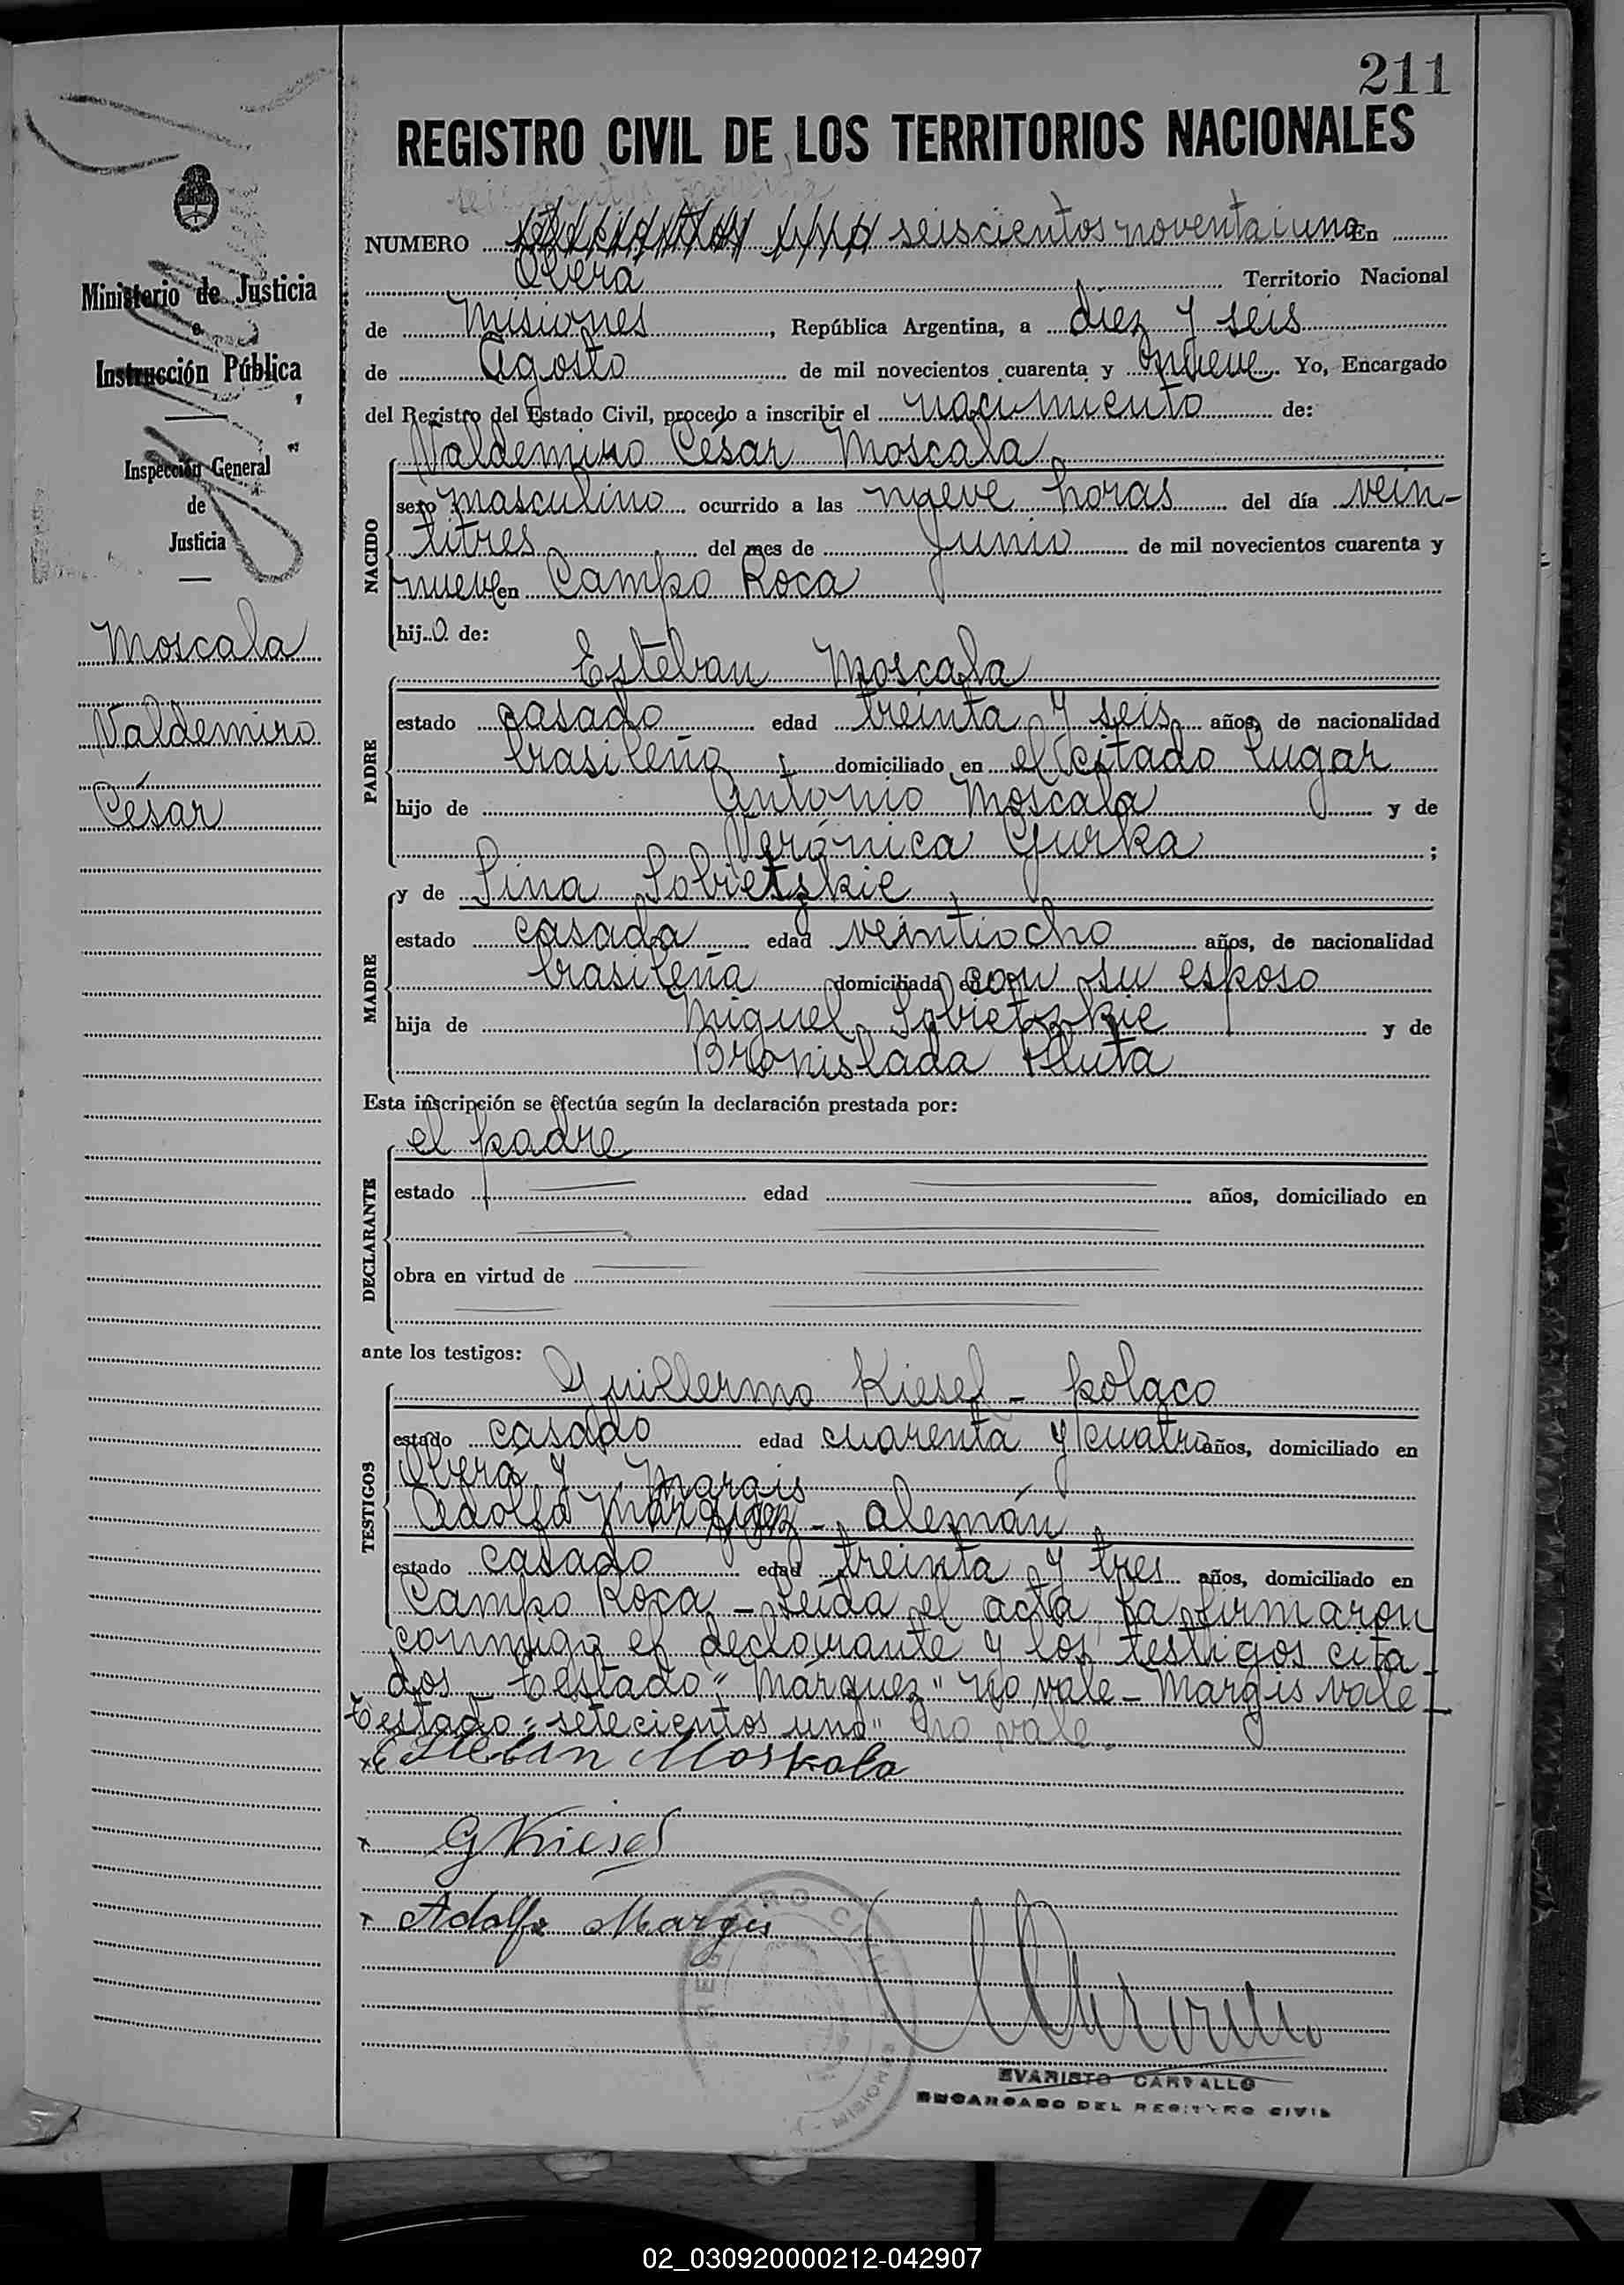 211
REGISTRO CIVIL DE LOS TERRITORIOS NACIONALES
Ministerio de Justicia
e
Instrucción Pública
Inspección General
de
Justicia
Moscala
Valdemiro
César
NUMERO setecientos uno seiscientos noventa i uno En
Oberá Territorio Nacional
de Misiones, República Argentina, a diez y seis
de Agosto de mil novecientos cuarenta y nueve Yo, Encargado
del Registro del Estado Civil, procedo a inscribir el nacimiento de:
NACIDO
Valdemiro César Moscala
sexo masculino ocurrido a las nueve horas del día vein-
titres del mes de Junio de mil novecientos cuarenta y
nueve en Campo Roca
hijo de:
PADRE
Esteban Moscala
estado casado edad treinta y seis años, de nacionalidad
brasileña domiciliado en el citado lugar
hijo de Antonio Moscala y de
Verónica Gurka ;
MADRE
y de Lina Sobietskie
estado casada edad veintiocho años, de nacionalidad
brasileña domiciliada en con su esposo
hija de Miguel Sobietzkie y de
Bronislada Pluta
Esta inscripción se efectúa según la declaración prestada por:
DECLARANTE
el padre
estado edad años, domiciliado en
obra en virtud de
ante los testigos:
TESTIGOS
Guillermo Kiesel - polaco
estado casado edad cuarenta y cuatro años, domiciliado en
Oberá y Margis
Adolfo Márquez - alemán
estado casado edad treinta y tres años, domiciliado en
Campo Roca - Leída el acta la firmaron
conmigo el declarante y los testigos cita-
dos - Testado "Márquez" no vale - Margis vale -
Testado: "setecientos uno" no vale.
x Esteban Moskala
x G Kiesel
x Adolfo Margis
REGISTRO CIVIL
MISIONES
EVARISTO CARVALLO
ENCARGADO DEL REGISTRO CIVIL
02_030920000212-042907